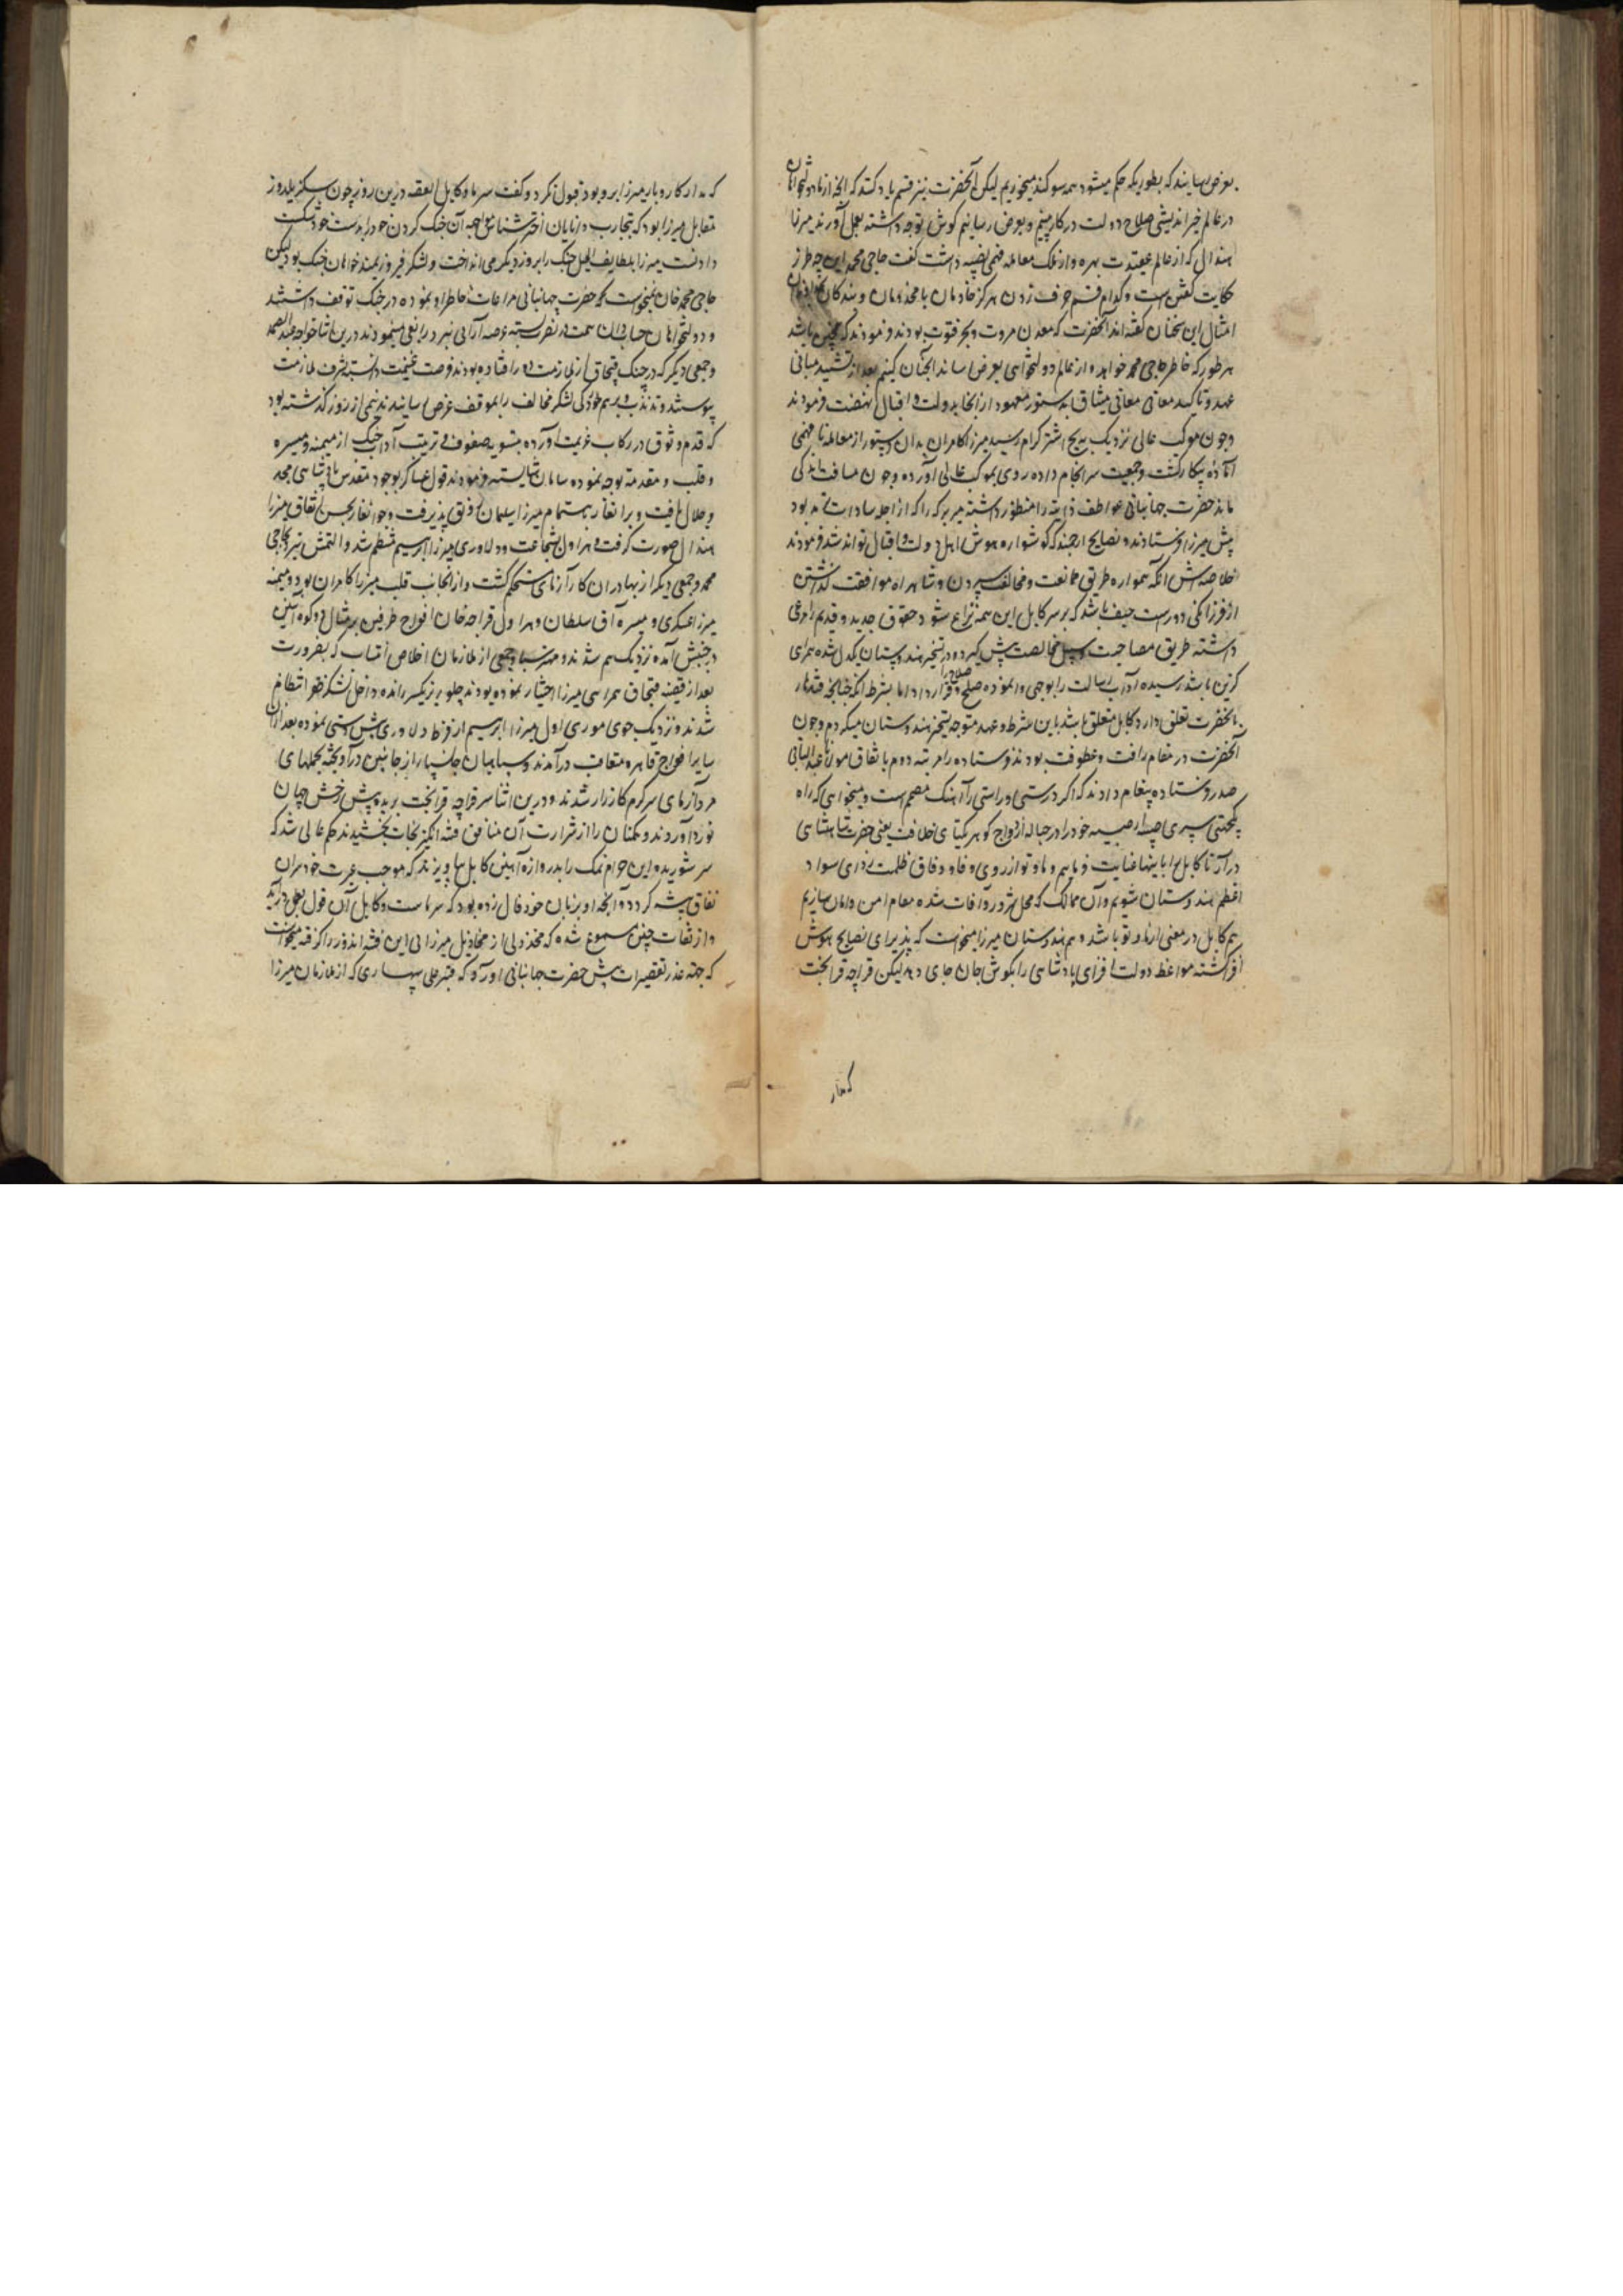 بعرض رسانند که بطوریکه حکم میشود همه سوکند میخوریم لیکن آنحضرت نیز قسم یاد کنند که آنچه از ما دولتخواهان
در عالم خیراندیشی صلاح دولت در کار بینیم و بعرض رسانیم کوش توجه داشته بعمل آورند میرزا
هندال که از عالم عقیدت بهره و از نمک معامله فهمی نصیبه داشت کفت حاجی محمد این چه طرز
حکایت کفتن است و کدام قسم حرف زدن هرکز خادمان با مخدومان و بندکان
امثال این سخنان کفته اند آنحضرت که معدن مروت و بحر فتوت بودند فرمودند که همچنین باشد
هر طور که خاطر حاجی محمد خواهد و از عالم دولتخواهی بعرض رساند آنچنان کنیم بعد از تشیید مبانی
عهد و تاکید معانی میثاق بدستور معهود از آنجا بدولت و اقبال نهضت فرمودند
و چون موکب عالی نزدیک به اشترکرام رسید میرزا کامران بدان دستور از معامله نافهمی
آماده پیکار کشت و جمعیت سرانجام داده روی بموکب عالی آورده و چون مسافت اندکی
ماند حضرت جهانبانی عواطف ذاتیه را منظور داشته میر برکه را که از اجله سادات ترمذ بود
پیش میرزا فرستادند و نصایح ارجمند که کوشواره هوش اهل دولت و اقبال تواند شد فرمودند
خلاصه اش آنکه همواره طریق ممانعت و مخالفت سپردن و شاهراه موافقت کذاشتن
از فرزانکی دور است حیف باشد که بر سر کابل این همه نزاع شود حقوق جدید و قدیم را مرعی
داشته طریق مصاحبت و سبیل مخالصت پیش کیرد و در تسخیر هندوستان یکدل شده همراهی
کزین باشد رسیده آداب رسالت را بوجهی وانموده صلح و صلاح را قرار داد اما بشرط آنکه چنانچه قندهار
بآنحضرت تعلق دارد کابل متعلق باشد باین شرط و عهد متوجه تسخیر هندوستان میکردم و چون
آنحضرت در مقام رافت و عطوفت بودند فرستاده را مرتبه دوم باتفاق مولانا عبدالباقی
صدر فرستاده پیغام دادند که اکر درستی و راستی را آهنک مصمم است و میخواهی که راه
یکجهتی سپری صبیه خود را در حباله ازدواج کوهر یکتای خلافت یعنی حضرت شاهنشاهی
درآر تا کابل را باینها عنایت فرماییم و ما و تو از روی وفا و وفاق ظلمت زدای سواد
اعظم هندوستان شویم و آن ممالک که محل شرور و آفات شده مقام امن و امان سازیم
هم کابل در معنی ازما و تو باشد و هم هندوستان میرزا میخواست که پذیرای نصایح هوش
افزا کشته مواعظ دولت افزای پادشاهی را بکوش جان جای دهد لیکن قراجه قرابخت
که مدار کاروبار میرزا برو بود قبول نکرد و کفت سر ما و کابل القصه درین روز چون سکزیلدوز
مقابل میرزا بود که بتجارب دانایان اختر شناس مواجه آن جنک کردن خود را بدست خود شکست
دادنست میرزا بلطایف الحیل جنک را بروز دیکر می انداخت و لشکر فیروزمند خواهان جنک بود لیکن
حاجی محمد خان نمیخواست که حضرت جهانبانی مراعات خاطر او نموده در جنک توقف داشتند
و دولتخواهان همت در نصرت بسته عرصه آرائی نبرد را سعی مینمودند درین اثنا خواجه عبدالصمد
و جمعی دیکر که در جنک قبچاق از ملازمت دور افتاده بودند فرصت غنیمت دانسته بشرف ملازمت
پیوستند و تذبذب و برهم خوردکی لشکر مخالف را بموقف عرض رسانیدند نیمی از روز کذشته بود
که قدم وثوق در رکاب عزیمت آورده بتسویه صفوف و ترتیب آداب جنک از میمنه و میسره
و قلب و مقدمه توجه نموده سامان شایسته فرمودند قول عساکر بوجود مقدس پادشاهی مجد
و جلال یافت و برانغار باهتمام میرزا سلیمان رونق پذیرفت و جوانغار بحسن اتفاق میرزا
هندال صورت کرفت و هراول بشجاعت و دلاوری میرزا ابراهیم منتظم شد و التمش حاجی
محمد و جمعی دیکر از بهادران کارآزمای مستحکم کشت و از آنجانب قلب میرزا کامران بود و میمنه
میرزا عسکری و میسره آق سلطان و هراول قراجه خان افواج طرفین بر مثال دو کوه آهنین
در جنبش آمده نزدیک هم شدند و جمعی از ملازمان اخلاص انتساب که بضرورت
بعد از قضیه قبچاق همراهی میرزا اختیار نموده بودند جلو ریز یکسر رانده داخل لشکر ظفر انتظام
شدند و نزدیک جوی موری اول میرزا ابراهیم از فرط دلاوری پیش دستی نموده بعد ازان
سایر افواج قاهره متعاقب درآمدند و سپاهیان جانسپار از جانبین درآویخته بحملهای
مردآزمای سرکرم کارزار شدند و درین اثنا سر قراجه قرابخت بریده پیش رخش جهان
نورد آوردند و همکنان را از شرارت آن منافق فتنه انکیز نجات بخشیدند حکم عالی شد که
سر شوریده این حرام نمک را بدروازه آهنین کابل بیاویزند که موجب عبرت خودسران
نفاق پیشه کردد و آنچه او بزبان خود فال زده بود که سر ماست و کابل آن قول بفعل درآید
و از ثقات چنین مسموع شده که مخذولی از مخاذیل میرزائی این فتنه اندوز را کرفته میخواست
که جهة عذر تقصیرات پیش حضرت جهانبانی آورد که قنبر علی سهاری که از ملازمان میرزا